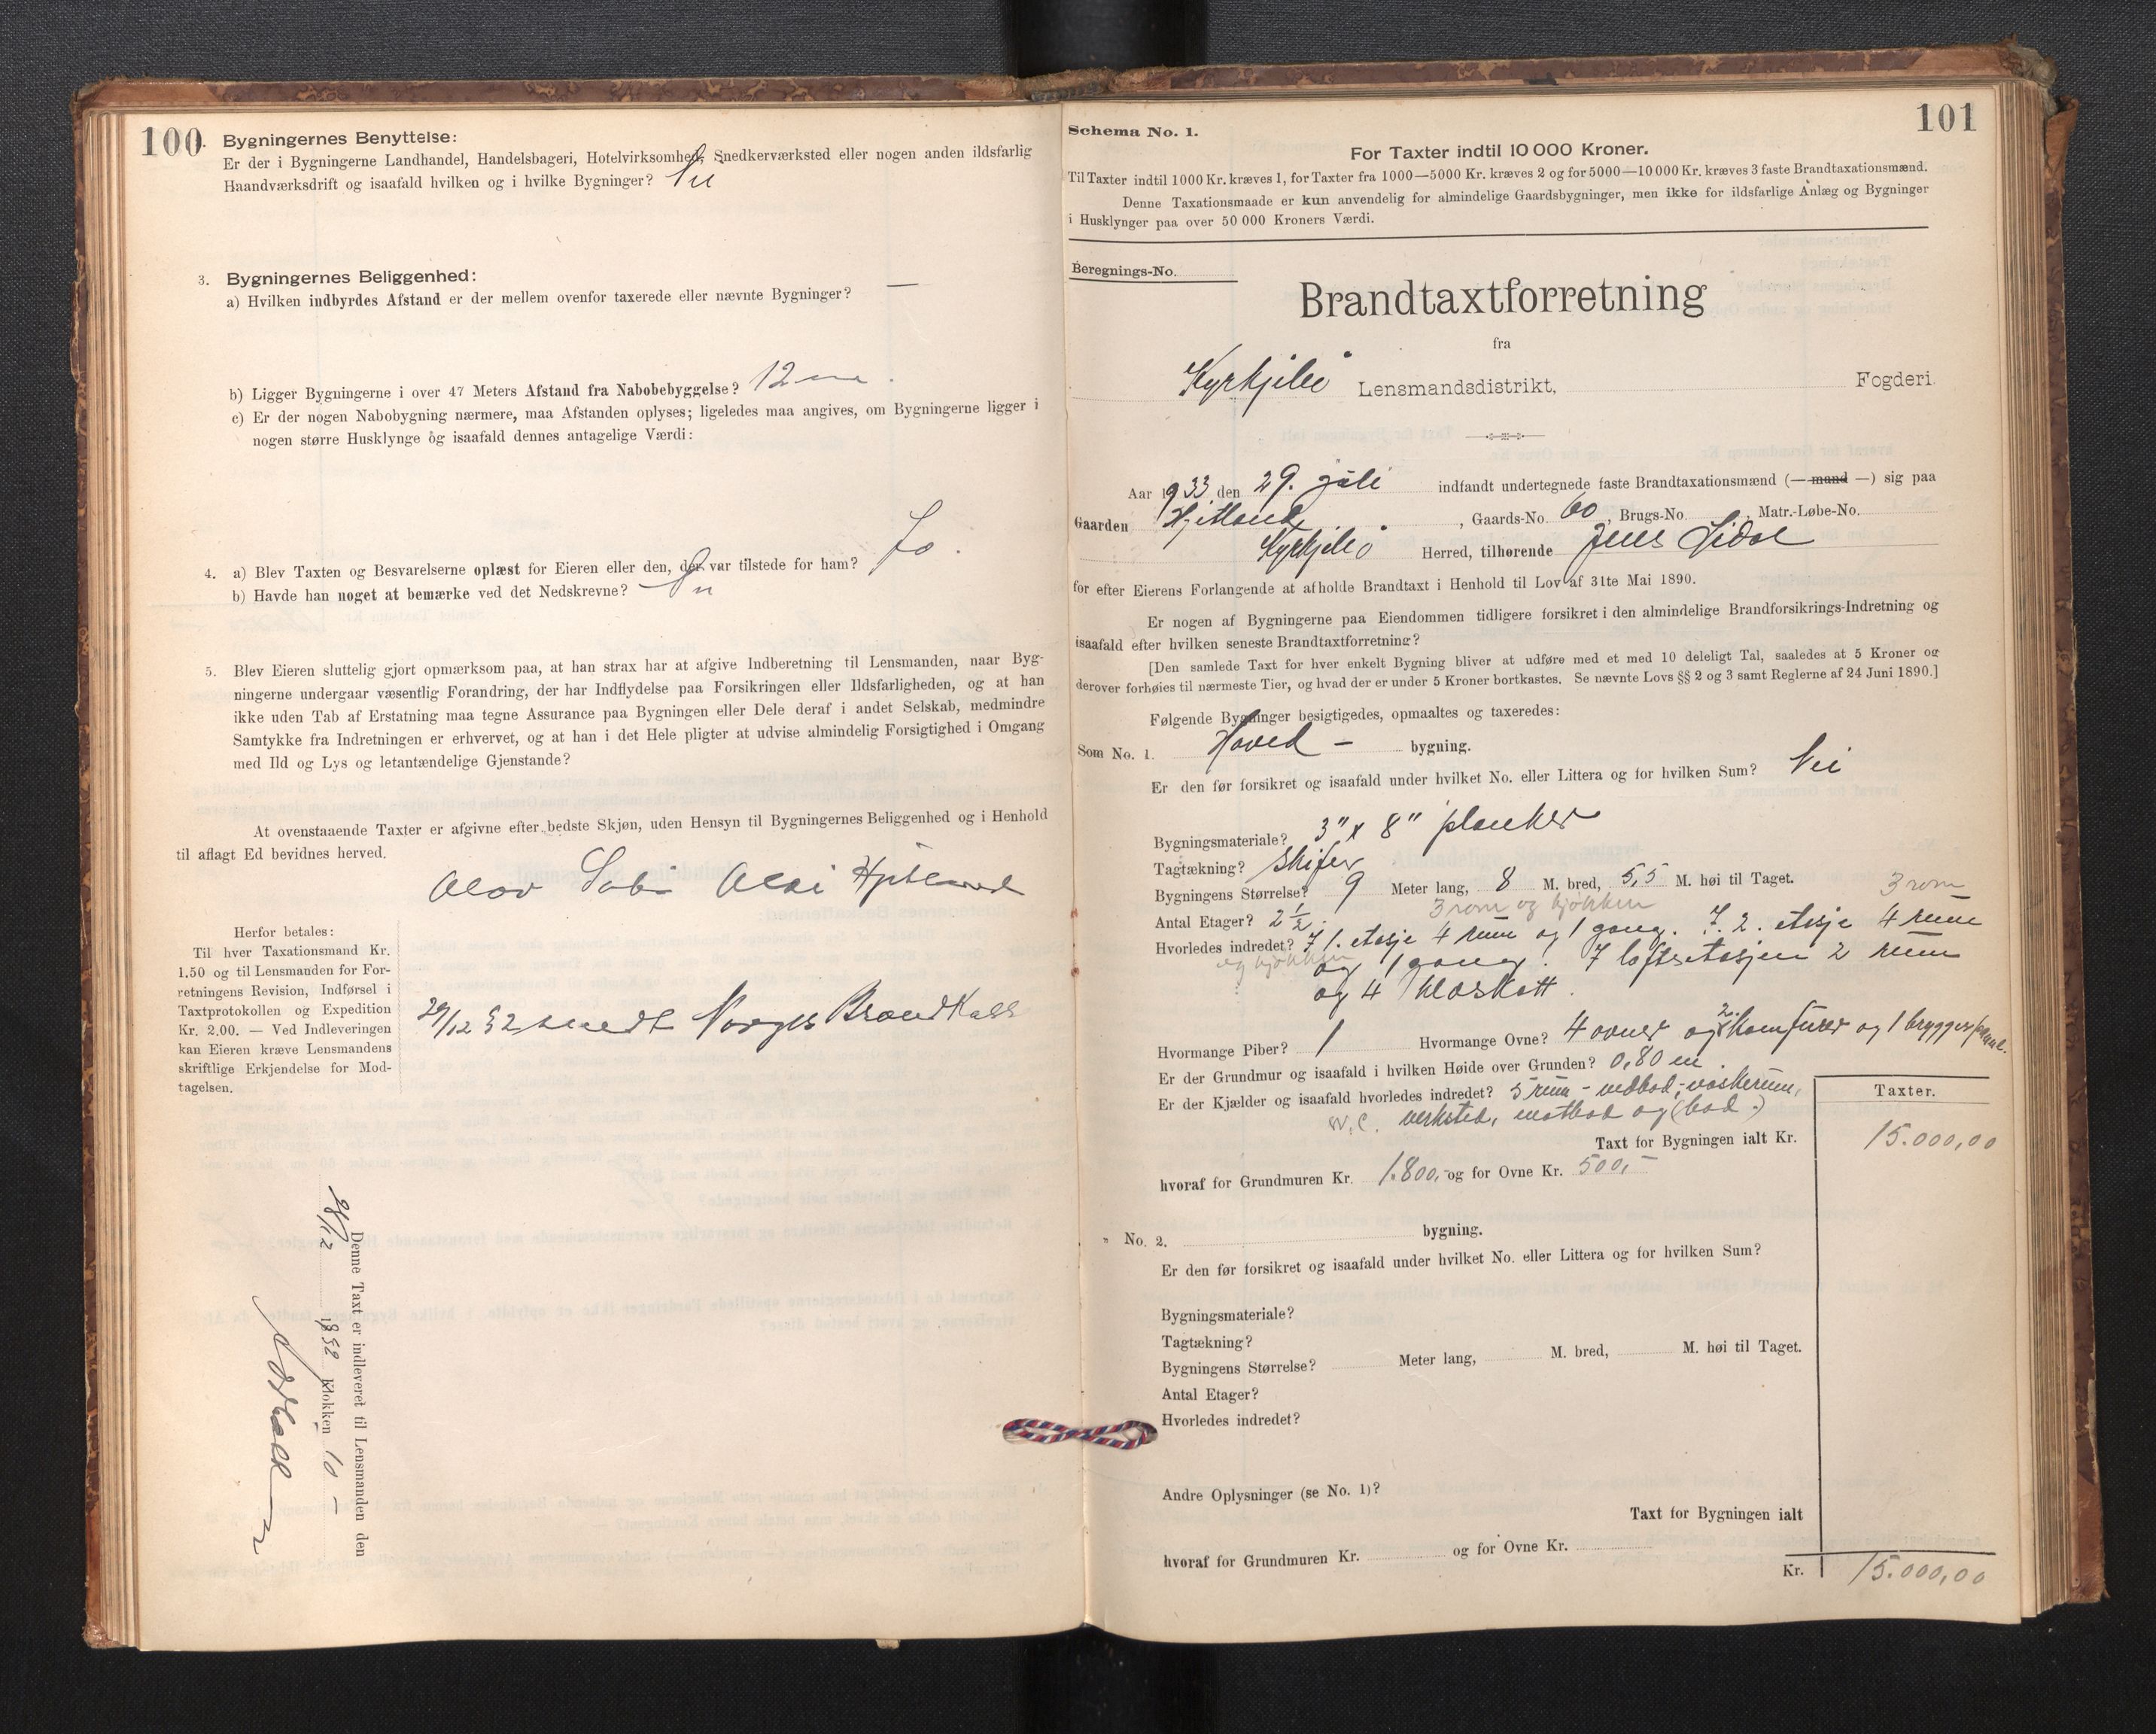 100
Bygningernes Benyttelse:
Er der i Bygningerne Landhandel, Handelsbageri, Hotelvirksomhed, Snedkerværksted eller nogen anden ildsfarlig
Haandværksdrift og isaafald hvilken og i hvilke Bygninger? Nei
3. Bygningernes Beliggenhed:
a) Hvilken indbyrdes Afstand er der mellem ovenfor taxerede eller nævnte Bygninger? —
b) Ligger Bygningerne i over 47 Meters Afstand fra Nabobebyggelse? 12 m.
c) Er der nogen Nabobygning nærmere, maa Afstanden oplyses; ligeledes maa angives, om Bygningerne ligger i
nogen større Husklynge og isaafald dennes antagelige Værdi:
4. a) Blev Taxten og Besvarelserne oplæst for Eieren eller den, der var tilstede for ham? Ja.
b) Havde han noget at bemærke ved det Nedskrevne? Nei
5. Blev Eieren sluttelig gjort opmærksom paa, at han strax har at afgive Indberetning til Lensmanden, naar Byg-
ningerne undergaar væsentlig Forandring, der har Indflydelse paa Forsikringen eller Ildsfarligheden, og at han
ikke uden Tab af Erstatning maa tegne Assurance paa Bygningen eller Dele deraf i andet Selskab, medmindre
Samtykke fra Indretningen er erhvervet, og at han i det Hele pligter at udvise almindelig Forsigtighed i Omgang
med Ild og Lys og letantændelige Gjenstande?
At ovenstaaende Taxter er afgivne efter bedste Skjøn, uden Hensyn til Bygningernes Beliggenhed og i Henhold
til aflagt Ed bevidnes herved.
Olav
Herfor betales:
Til hver Taxationsmand Kr.
1.50 og til Lensmanden for For-
retningens Revision, Indførsel i
Taxtprotokollen og Expedition
Kr. 2.00. — Ved Indleveringen
kan Eieren kræve Lensmandens
skriftlige Erkjendelse for Mod-
tagelsen.
29/12 32 sendt Norges Brandkasse
Denne Taxt er indleveret til Lensmanden den
28/12 1932 Klokken 10 —
101
Schema No. 1.
For Taxter indtil 10 000 Kroner.
Til Taxter indtil 1000 Kr. kræves 1, for Taxter fra 1000—5000 Kr. kræves 2 og for 5000—10 000 Kr. kræves 3 faste Brandtaxationsmænd.
Denne Taxationsmaade er kun anvendelig for almindelige Gaardsbygninger, men ikke for ildsfarlige Anlæg og Bygninger
i Husklynger paa over 50 000 Kroners Værdi.
Beregnings-No.
Brandtaxtforretning
fra
Kyrkjebø Lensmandsdistrikt, Fogderi.
Aar 1933 den 29. juli indfandt undertegnede faste Brandtaxationsmænd (— mand —) sig paa
Gaarden Hjetland, Gaards-No. 60, Brugs-No. , Matr.-Løbe-No.
Kyrkjebø Herred, tilhørende Jens
for efter Eierens Forlangende at afholde Brandtaxt i Henhold til Lov af 31te Mai 1890.
Er nogen af Bygningerne paa Eiendommen tidligere forsikret i den almindelige Brandforsikrings-Indretning og
isaafald efter hvilken seneste Brandtaxtforretning?
[Den samlede Taxt for hver enkelt Bygning bliver at udføre med et med 10 deleligt Tal, saaledes at 5 Kroner og
derover forhøies til nærmeste Tier, og hvad der er under 5 Kroner bortkastes. Se nævnte Lovs §§ 2 og 3 samt Reglerne af 24 Juni 1890.]
Følgende Bygninger besigtigedes, opmaaltes og taxeredes:
Som No. 1. Hoved - bygning.
Er den før forsikret og isaafald under hvilket No. eller Littera og for hvilken Sum? Nei
Bygningsmateriale? 3" x 8" planker
Tagtækning? Skifer
Bygningens Størrelse? 9 Meter lang, 8 M. bred, 5,5 M. høi til Taget.
Antal Etager? 2 ½. 3 rom og kjøkken 3 rom
Hvorledes indredet? I 1. etasje 4 rum og 1 gang. I. 2. etasje 4 rum
og kjøkken og 1 gang. I loftsetasjen 2 rum
og 4 kleskott.
Hvormange Piber? 1 Hvormange Ovne? 4 ovner og 2 komfurer og 1 bryggepanne.
Er der Grundmur og isaafald i hvilken Høide over Grunden? 0,80 m.
Er der Kjælder og isaafald hvorledes indredet? 5 rum - vedbod, vaskerum,
W.C. verksted, matbod og (bod.)
Taxter.
Taxt for Bygningen ialt Kr. 15.000,00
hvoraf for Grundmuren Kr. 1.800,- og for Ovne Kr. 500,-
" No. 2. bygning.
Er den før forsikret og isaafald under hvilket No. eller Littera og for hvilken Sum?
Bygningsmateriale?
Tagtækning?
Bygningens Størrelse? Meter lang, M. bred, M. høi til Taget.
Antal Etager?
Hvorledes indredet?
Andre Oplysninger (se No. 1)?
Taxt for Bygningen ialt
hvoraf for Grundmuren Kr. og for Ovne Kr.
Kr. 15.000,00